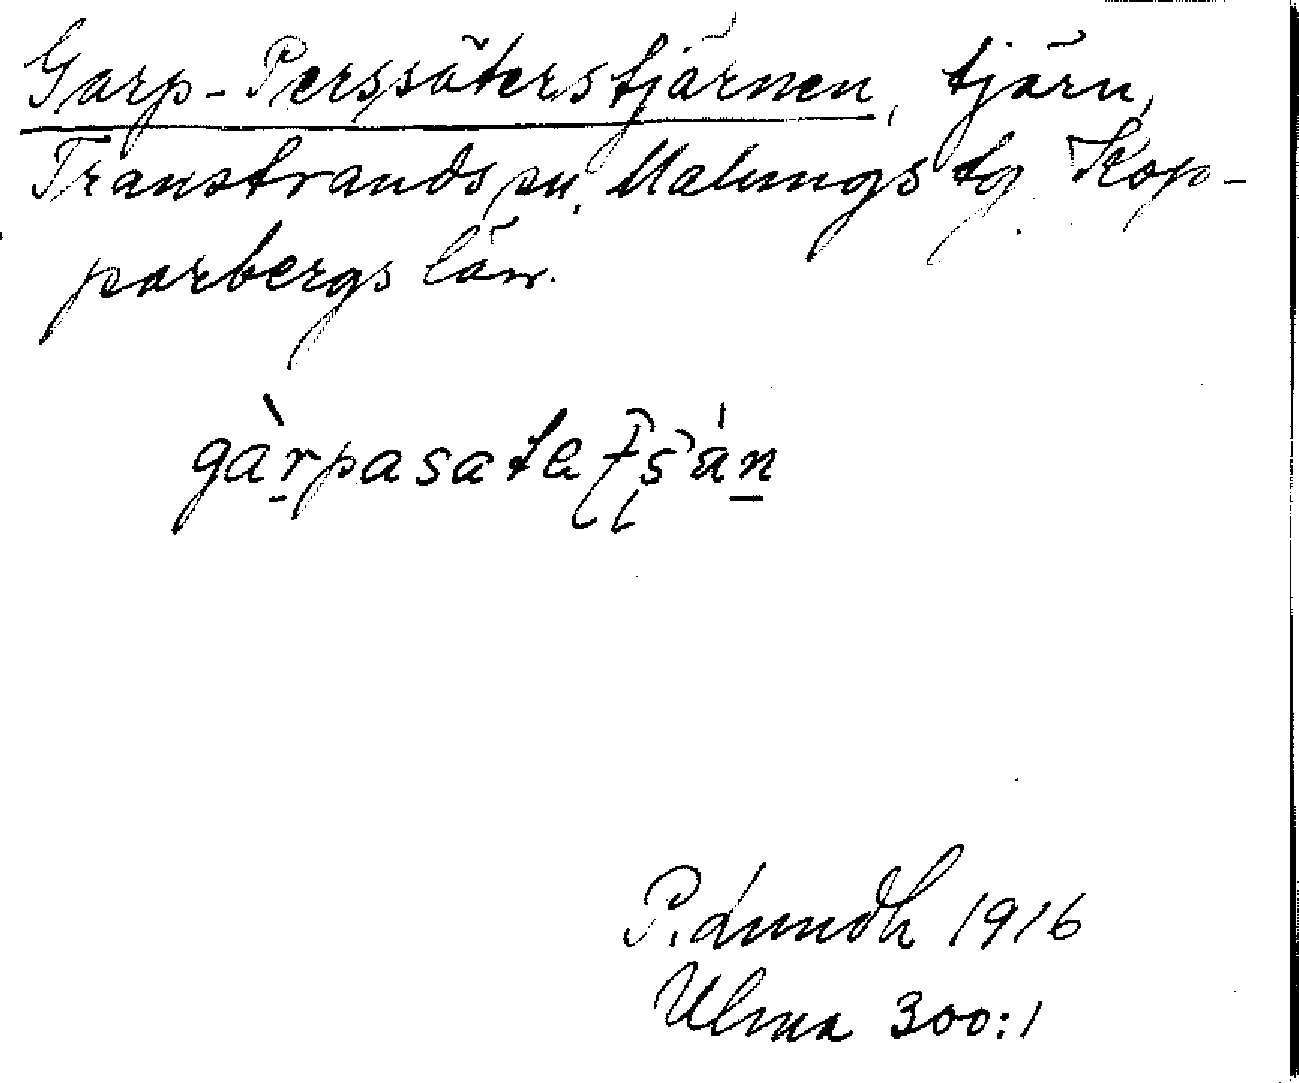 Garp-Perssäterstjärnen, tjärn,
Transtrands sn, Malungs tg. Kop-
parbergs län.
P. Lundh 1916
Ulma 300:1